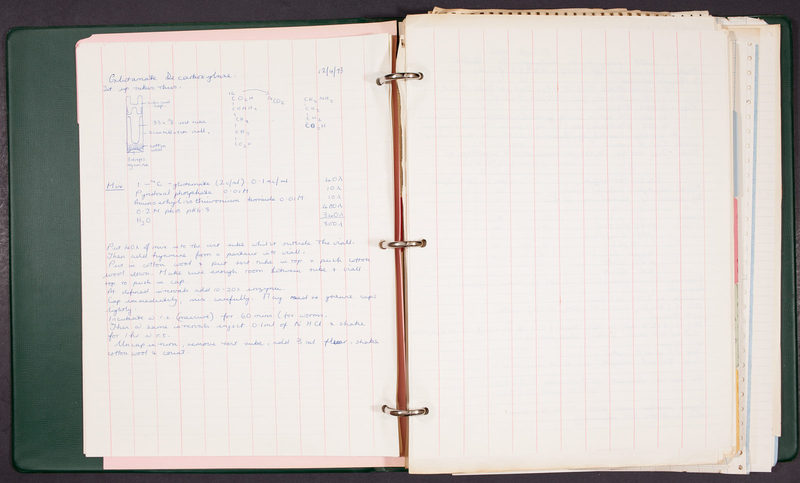 Glutamate Decarboxylase. 12/4/73
Set up mixes thus.
rubber seal cap.
test tube
Scintillation vial.
cotton wool
hyamine
14 CO2H 14CO2 CH2NH2
CHNH2 CH2
CH2 CH2
CH2 CO2H
CO2H
Mix 1-14C-glutamate (2c/ml) 0.1mc/ml 40λ
Pyridoxal phosphate 0.01M 10λ
Aminoethylisothiouronium bromide 0.01M 10λ
0.2M phos pH 6.8 400λ
H2O 340λ
800λ
Put 40λ of mix into the test tube whilst outside the vial.
Then add hyamine from a pasteur into vial.
Put in cotton wool & put test tube on top & push cotton
wool down. Make sure enough room between tube & vial
top to push in cap.
At defined intervals add 10-20λ enzyme.
Cap immediately, mix carefully. May need to grease caps
lightly
Incubate @ r.t. (maximum) for 60 mins (for worms.
Then @ same intervals inject 0.1ml of N HCl & shake
for 1 hr @ r.t.
Uncap, remove test tube, add ml fluor, shake
cotton wool & count.